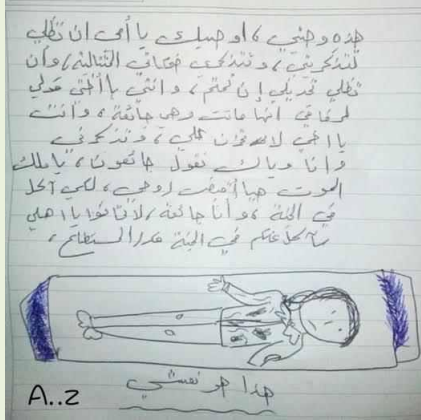 هذه وصيتي، اوصيك يا أمي ان تظلي
تتذكريني، وتتذكري ضحكاتي
تظلي، وانتي يا أختي قولي
لرفاقي أنها ماتت وهي جائعة، وأنت
يا اخي لا تحزن علي، وتذكرني
وأنا وياك نقول جائعون، يا ملك
الموت هيا أقبض روحي، لكي آكل
في الجنة، وأنا جائعة، لا تخافوا يا اهلي
سآكل عنكم في الجنة قدر المستطاع،
هذا هو نعشي
A..Z